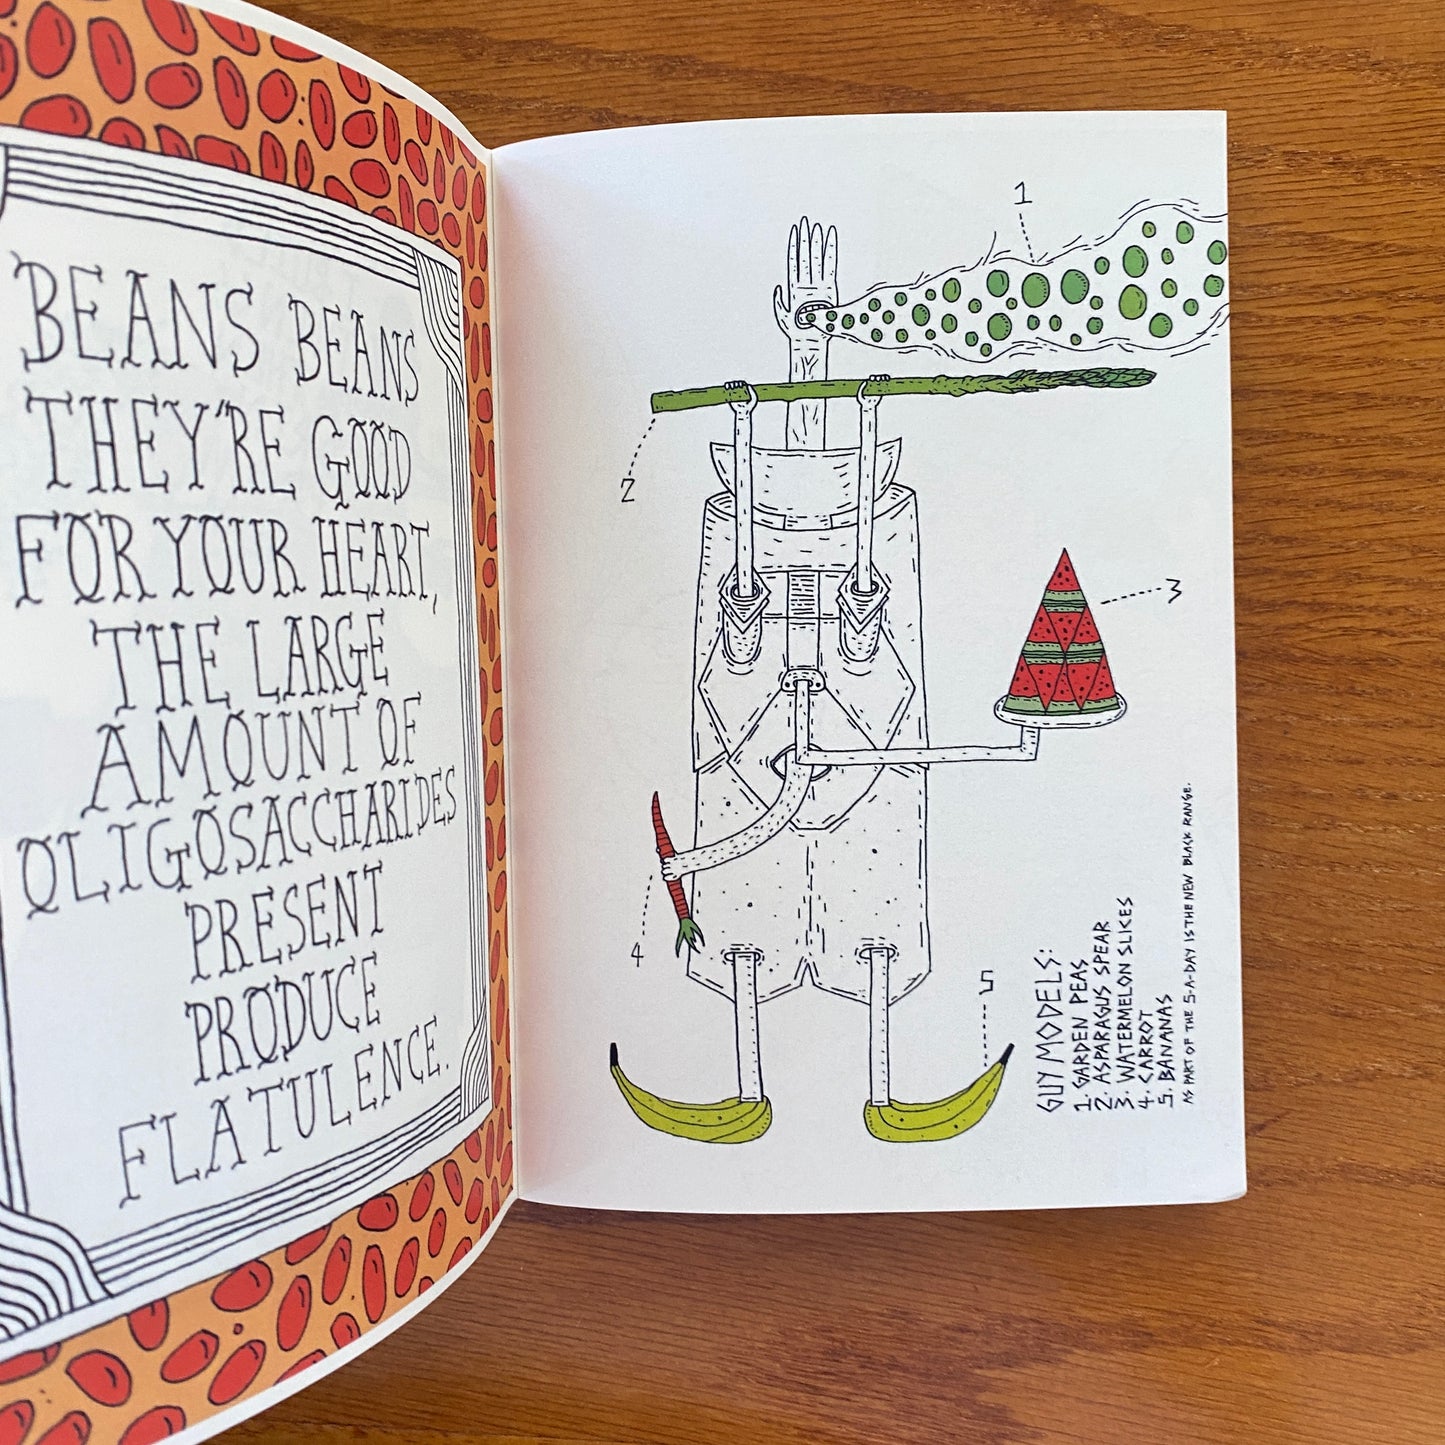 BEANS BEANS
THEY'RE GOOD
FOR YOUR HEART,
THE LARGE
AMOUNT OF
OLIGOSACCHARIDES
PRESENT
PRODUCE
FLATULENCE.
1
2
3
4
5
GUY MODELS:
1. GARDEN PEAS
2. ASPARAGUS SPEAR
3. WATERMELON SLICES
4. CARROT
5. BANANAS
AS PART OF THE 5-A-DAY IS THE NEW BLACK RANGE.